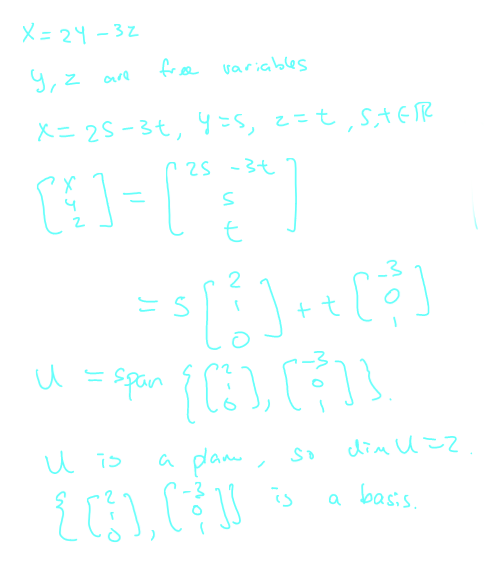 x = 2y - 3z
y, z are free variables
x = 2s - 3t, y = s, z = t, s, t ∈ ℝ
[x y z] = [2s - 3t s t]
= s [2 1 0] + t [-3 0 1]
U = span {[2 1 0], [-3 0 1]}.
U is a plane, so dim U = 2.
{[2 1 0], [-3 0 1]} is a basis.